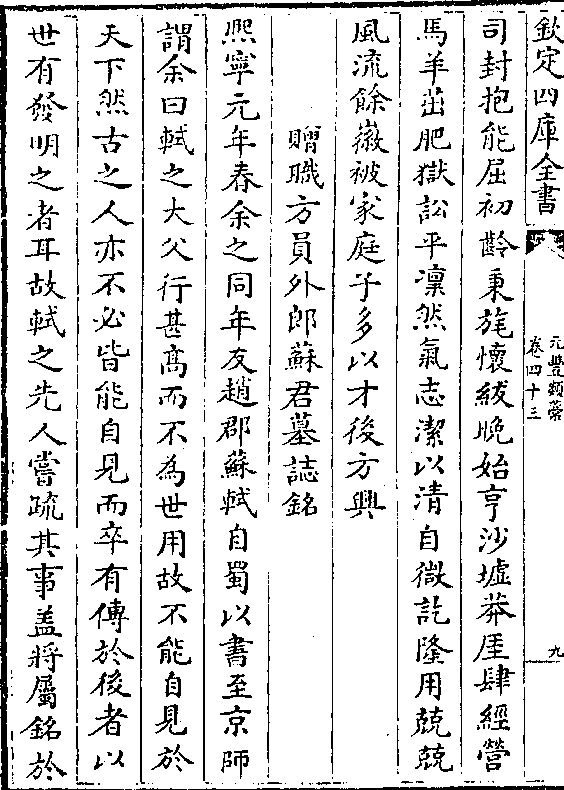 欽定四庫全書
元豐類藁
卷四十三
九
司封抱能屈初齡秉旄懷紱晚始亨沙墟莽厓肆經營
馬羊茁肥獄訟平凜然氣志潔以清自微訖隆用兢兢
風流餘徽被家庭子多以才後方興
贈職方員外郎蘇君墓誌銘
熈寧元年春余之同年友趙郡蘇軾自蜀以書至京師
謂余曰軾之大父行甚髙而不為世用故不能自見於
天下然古之人亦不必皆能自見而卒有傳於後者以
世有發明之者耳故軾之先人嘗疏其事盖將屬銘於